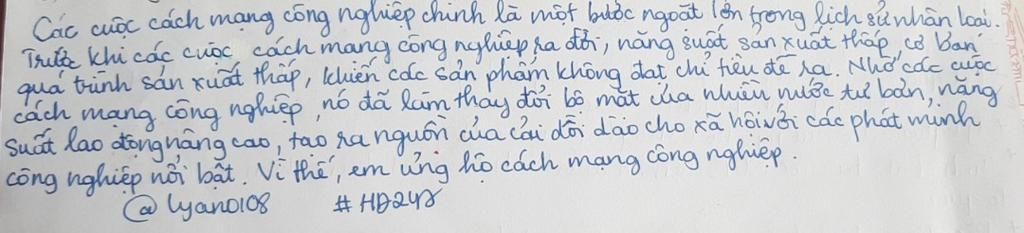 Các cuộc cách mạng công nghiệp chính là một bước ngoặt lớn trong lịch sử nhân loại.
Trước khi các cuộc cách mạng công nghiệp ra đời, năng suất sản xuất thấp, cơ bản
quá trình sản xuất thấp, khiến các sản phẩm không đạt chỉ tiêu đề ra. Nhờ các cuộc
cách mạng công nghiệp, nó đã làm thay đổi bộ mặt của nhiều nước tư bản, năng
suất lao động nâng cao, tạo ra nguồn của cải dồi dào cho xã hội với các phát minh
công nghiệp nổi bật. Vì thế, em ủng hộ cách mạng công nghiệp.
@lyan0108 #HD248